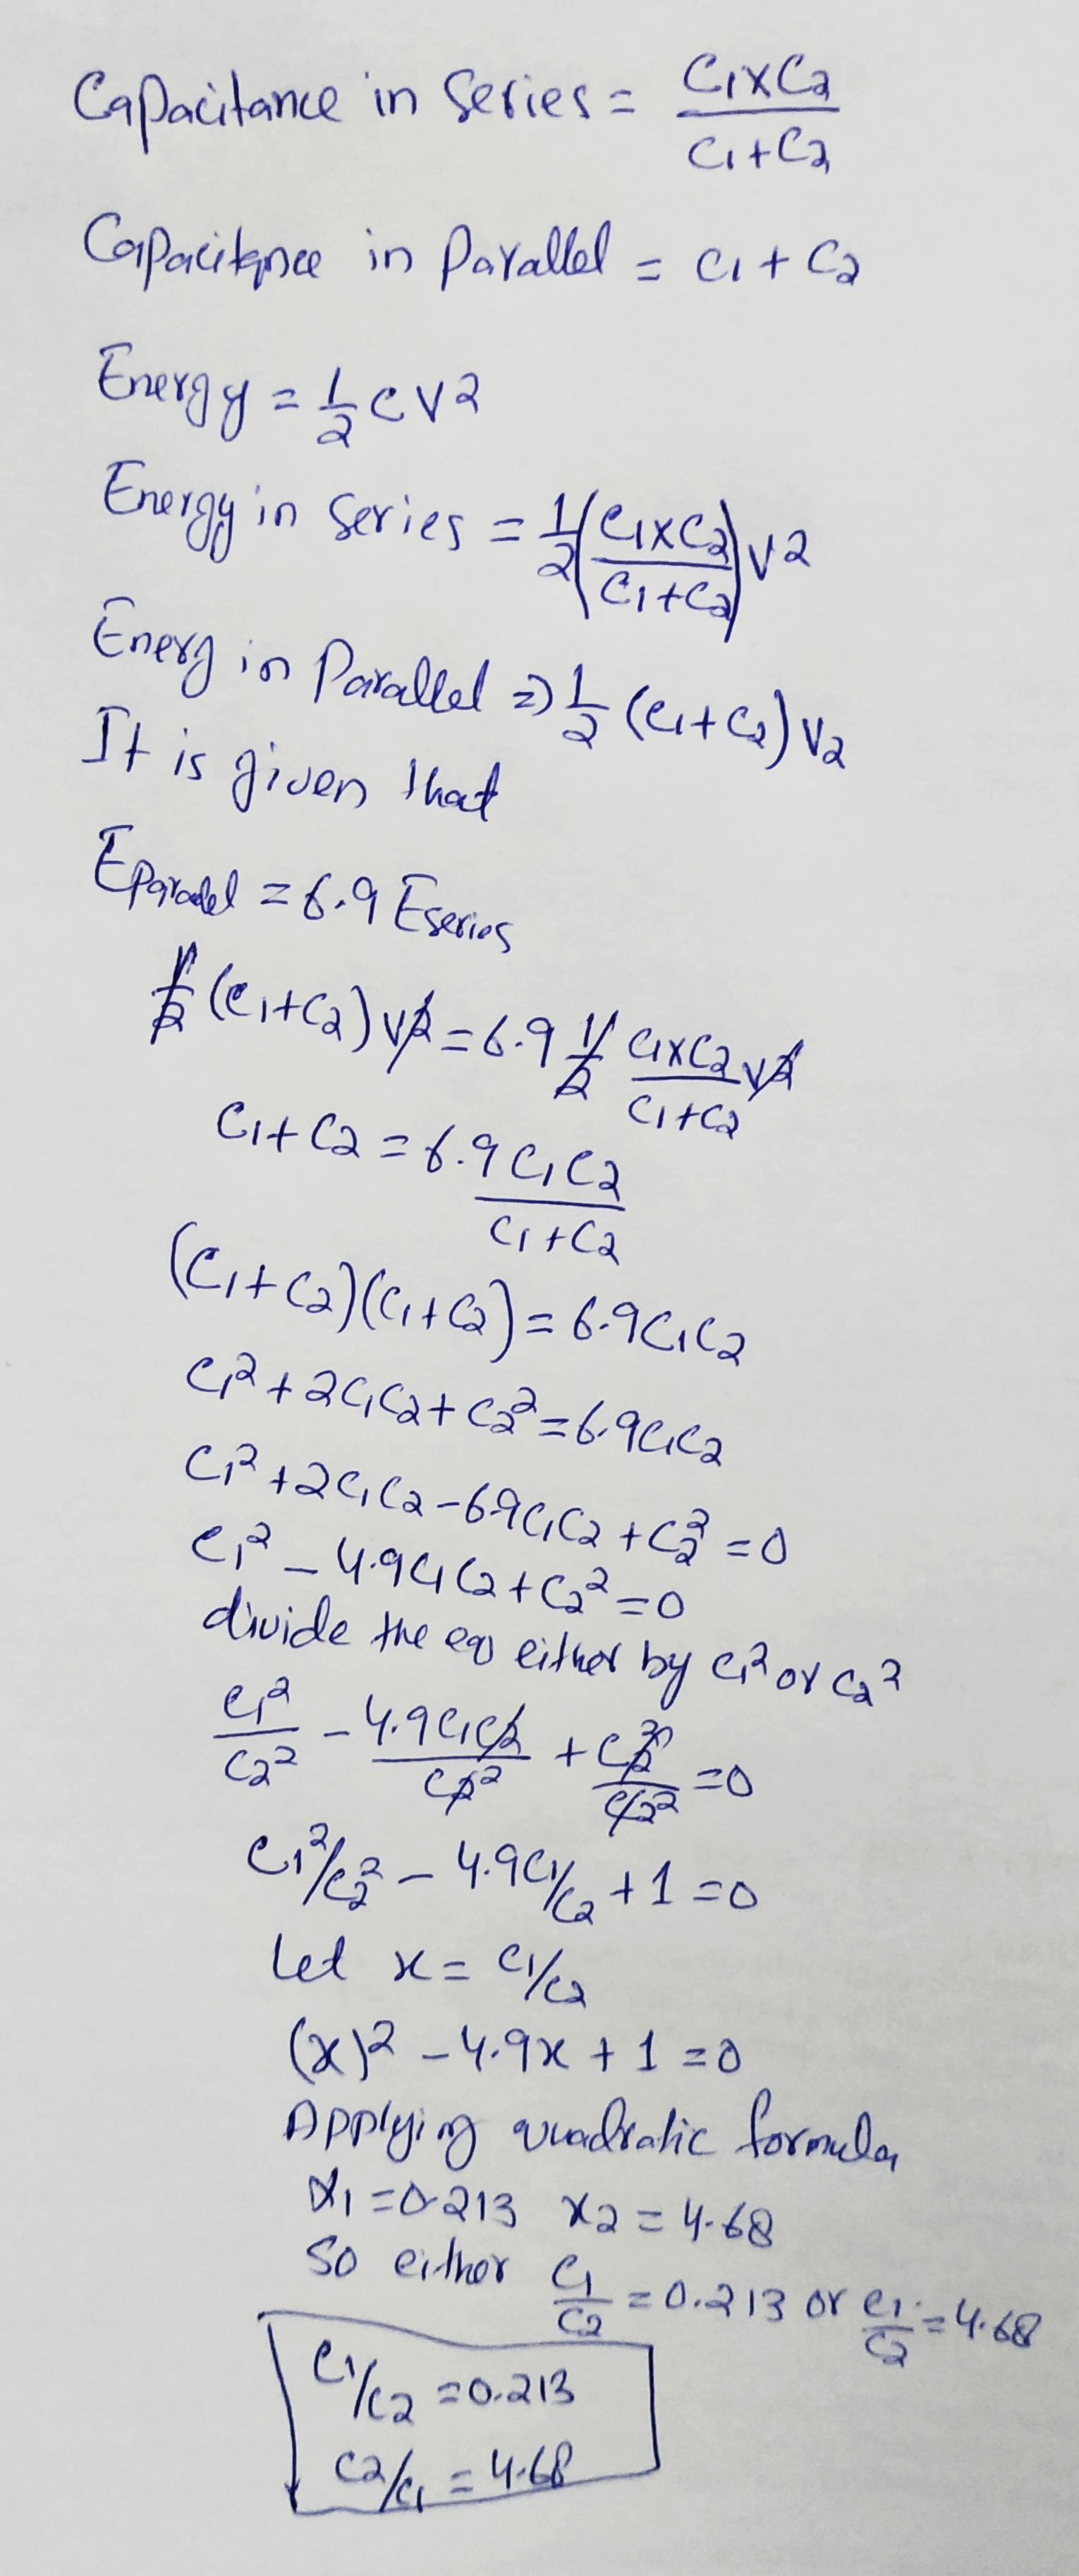 Capacitance in Series = C1xC2/C1+C2
Capacitance in Parallel = C1 + C2
Energy = 1/2 CV2
Energy in Series = 1/2 (C1xC2/C1+C2) V2
Energ in Parallel => 1/2 (C1+C2) V2
It is given that
Eparallel = 6.9 Eseries
1/2 (C1+C2) V2 = 6.9 1/2 C1xC2/C1+C2 V2
C1+C2 = 6.9 C1C2/C1+C2
(C1+C2)(C1+C2) = 6.9C1C2
C1² + 2C1C2 + C2² = 6.9C1C2
C1² + 2C1C2 - 6.9C1C2 + C2² = 0
C1² - 4.9C1C2 + C2² = 0
divide the eq either by C1² or C2²
C1²/C2² - 4.9C1C2/C2² + C2²/C2² = 0
C1²/C2² - 4.9C1/C2 + 1 = 0
Let x = C1/C2
(x)² - 4.9x + 1 = 0
Applying quadratic formula
x1 = 0.213 x2 = 4.68
So either C1/C2 = 0.213 or C1/C2 = 4.68
C1/C2 = 0.213
C2/C1 = 4.68